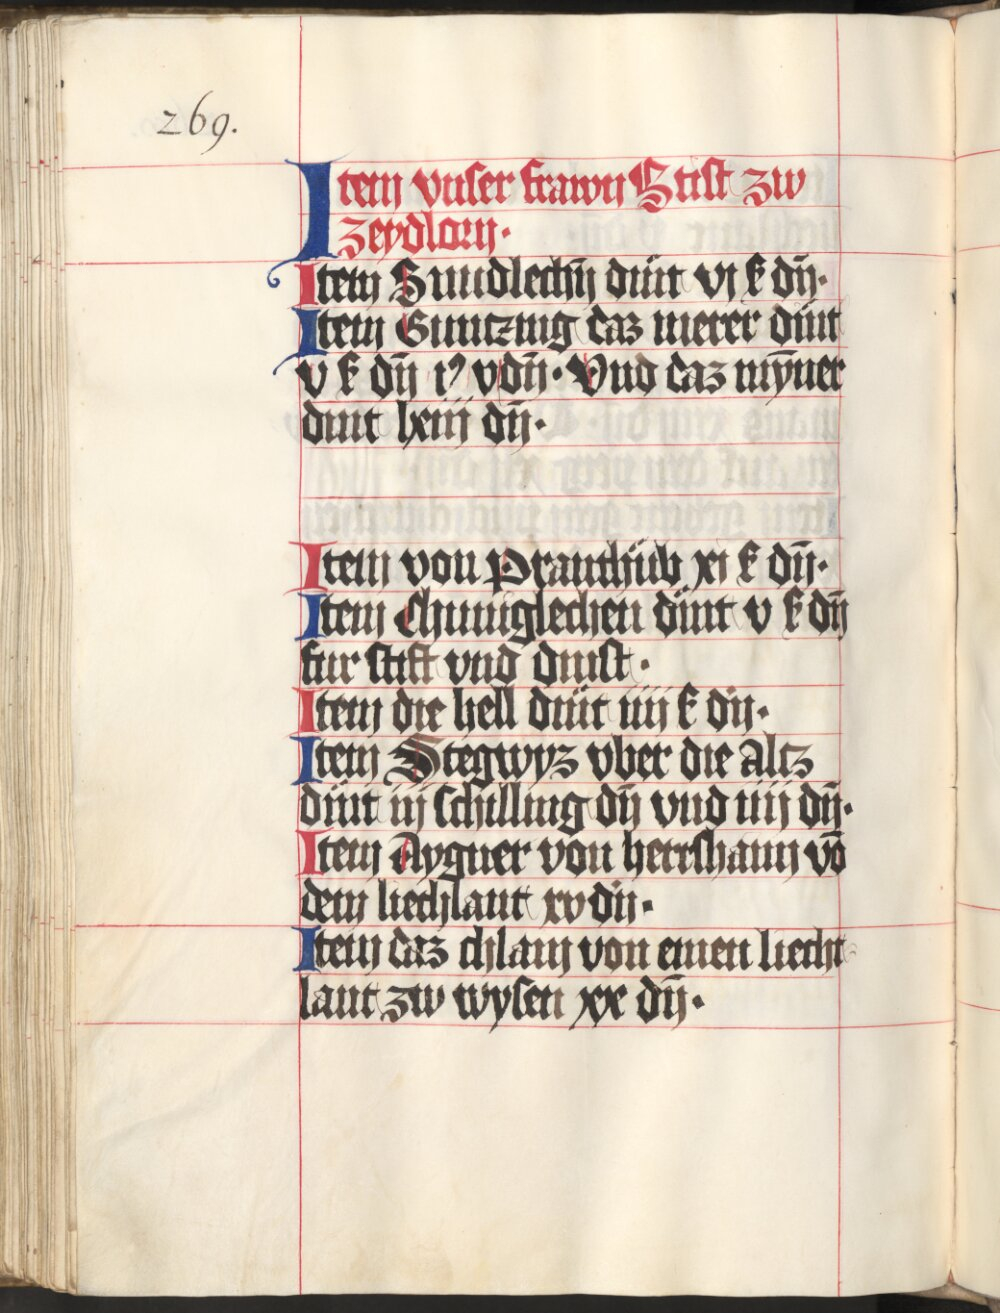 269.
Item vnser frawn Stift zw
Zeydlorn·
Item Sundlechn̄ dint vi ß dn̄·
Item Guntzing daz merer dint
v ß dn̄ v dn̄· Vnd daz myner
dint lxiij dn̄·
Item von Pranthub xi ß dn̄·
Item Chuniglechen dint v ß dn̄
fur stift vnd dinst·
Item die hell dint iiij ß dn̄·
Item Stegwyz vber die Altz
dint iij schilling dn̄ vnd iiij dn̄·
Item Aygner von herrshaim vō
dem liechlant xv dn̄·
Item daz chlain von einen liecht
lant zw wysen xx dn̄·